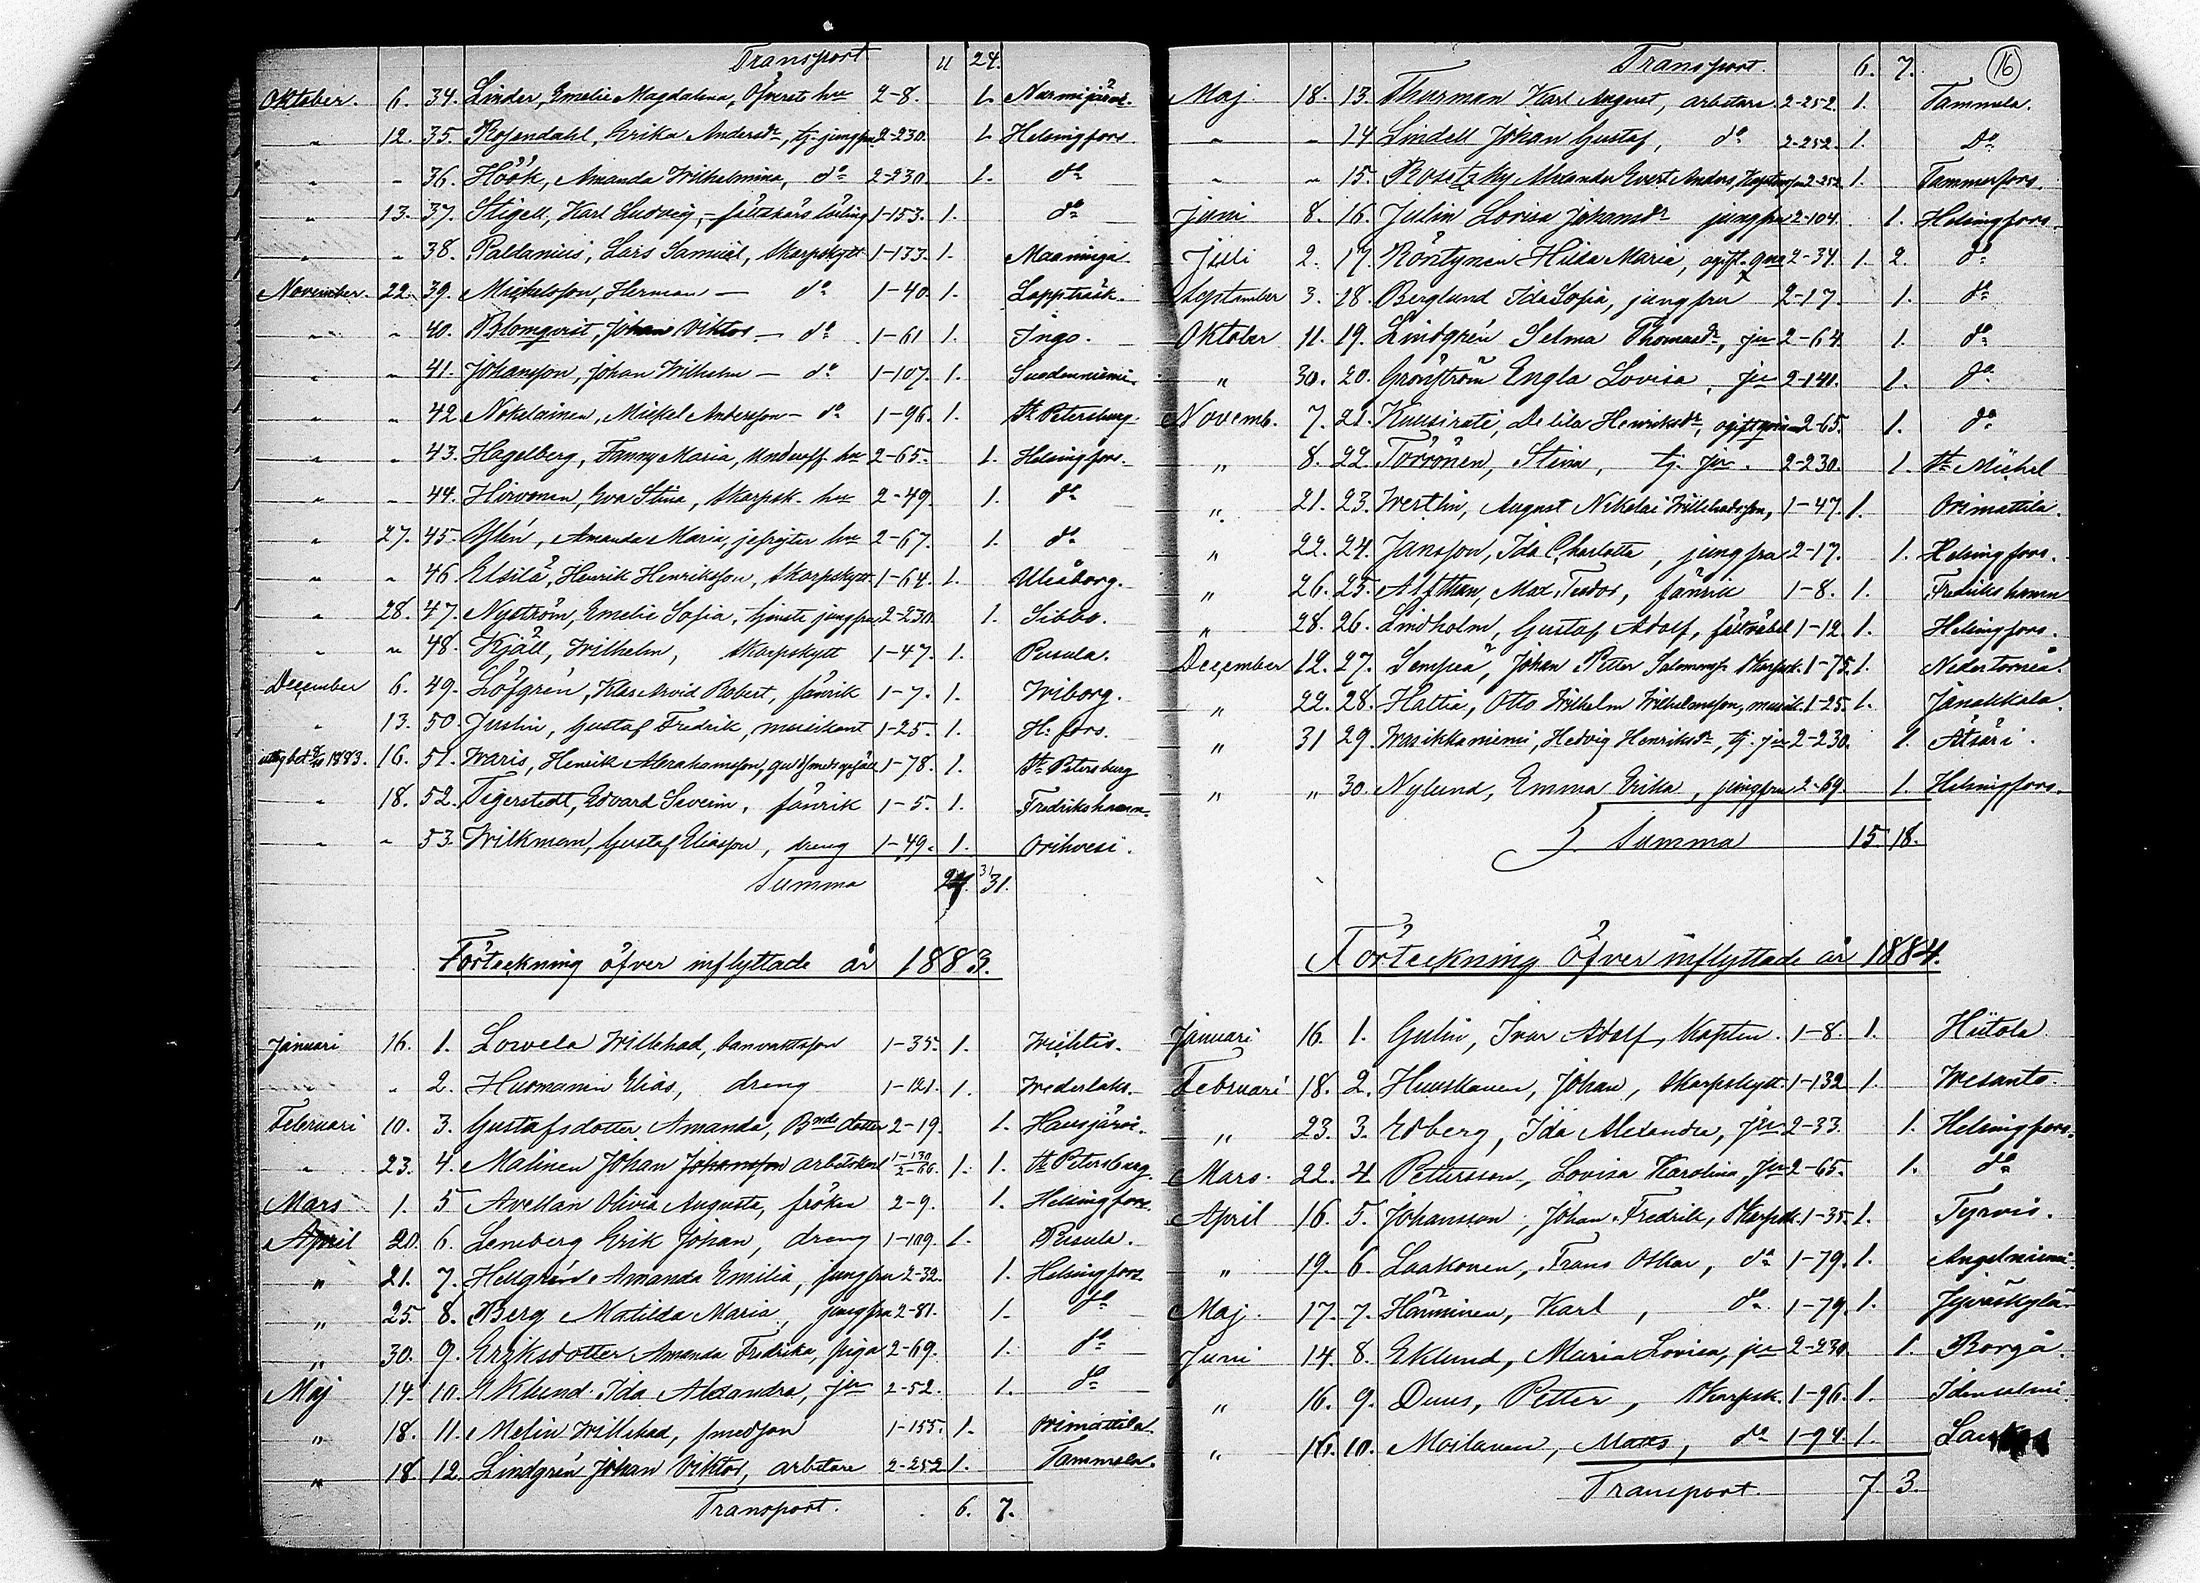 Transport 11 24.
Oktober. 6. 34. Linder, Emelie Magdalena, Öfverst hu 2-8. 1. Nurmijärvi.
" 12. 35. Rosendahl, Erika Andersdr, tj. jungfru 2-230. 1. Helsingfors.
" " 36. Höök, Amanda Wilhelmina, do 2-230. 1. do
" 13. 37. Stigell, Karl Ludvig, - fältskärs lärling 1-153. 1. do
" " 38. Paldanius, Lars Samuel, Skarpskytt 1-133. 1. Maaninga.
November. 22. 39. Mickelsson, Herman — do 1-40. 1. Lappträsk.
" " 40. Blomqvist, Johan Viktor — do 1-61 1. Ingo.
" " 41. Johansson, Johan Wilhelm — do 1-107. 1. Suodenniemi.
" " 42. Nokelainen, Mickel Andersson — do 1-96. 1. St Petersburg.
" " 43. Hagelberg, Fanny Maria, Underoff. hu 2-65. 1. Helsingfors.
" " 44. Hirvonen, Eva Stina, Skarpsk. hu 2-49. 1. do
" 27. 45. Ylén, Amanda Maria, jefrejter hu 2-67. 1. do
" " 46. Elsilä, Henrik Henriksson, Skarpskytt 1-64. 1. Uleåborg.
" 28. 47. Nyström, Emelie Sofia, tjenste jungfru 2-230. 1. Sibbo.
" " 48. Kjäll, Wilhelm, Skarpskytt 1-47. 1. Pusula.
December 6. 49. Löfgrén, Klas Arvid Robert, fänrik 1-7. 1. Wiborg.
" 13. 50. Juslin, Gustaf Fredrik, musikant 1-25. 1. H:fors.
1883. 16. 51. Waris, Henrik Abrahamsson, guldsmedsgesäll 1-78. 1. St Petersburg
" 18. 52. Tigerstedt, Edvard Severin, fänrik 1-5. 1. Fredrikshamn.
" " 53. Wilkman, Gustaf Eliasson, dreng 1-49. 1. Orihvesi.
Summa 31 31.
Förteckning öfver inflyttade år 1883.
Januari 16. 1. Lowela Willehad, banvaktsson 1-35. 1. Wichtis.
" " 2. Hurmanen Elias, dreng 1-121. 1. Wederlaks.
Februari 10. 3. Gustafsdotter Amanda, Bnde dotter 2-19. 1. Hausjärvi.
" 23. 4. Malinen Johan Johansson arbetskarl 1-130 2-66. 1. 1. St Petersburg.
Mars 1. 5 Avellan Olivia Augusta, fröken 2-9. 1. Helsingfors.
April 20. 6. Leneberg Erik Johan, dreng 1-109. 1. Pusula.
" 21. 7. Amanda Emilia, jungfru 2-32. 1. Helsingfors.
" 25. 8. Berg Matilda Maria, jungfru 2-81. 1. do
" 30. 9. Eriksdotter Amanda Fredrika, piga 2-69. 1. do
Maj 14. 10. Eklund Ida Alexandra, jfu 2-52. 1. do
" 18. 11. Melin Willehad, smedson 1-155. 1. Orimattila.
" 18. 12. Lindgrén Johan Viktor, arbetare 2-252 1. Tammela.
Transport. 6. 7.
16
Transport. 6. 7.
Maj. 18. 13. Thurman Karl August, arbetare 2-252. 1. Tammela.
" " 14. Lindell Johan Gustaf, do 2-252. 1. Do
" " 15. Rositzky Alexander Evert Anders, 2-252 1. Tammerfors.
Juni 8. 16. Julin Lovisa Johansdr jungfru 2-104. 1. Helsingfors.
Juli 2. 17. Röntynen Hilda Maria, ogift. qva 2-34. 1. 2. do
September 3. 18. Berglund Ida Sofia, jungfru 2-17. 1. do
Oktober 11. 19. Lindgrén Selma Thomasdr, jfu 2-64. 1. do
" 30. 20. Grönström Engla Lovisa, jfu 2-141. 1. do
Novemb. 7. 21. Kuusirati, Delila Henriksdr, ogift qvinna 2-65. 1. do
" 8. 22. Törrönen, Stina, tj. jfu. 2-230. 1. St Michel
" 21. 23. Westlin, August Nikolai Willehadsson, 1-47. 1. Orimattila.
" 22. 24. Jansson, Ida Charlotta, jungfru 2-17. 1. Helsingfors.
" 26. 25. Alfthan, Max Teodor, fänrik 1-8. 1. Fredrikshamn
" 28. 26. Lindholm, Gustaf Adolf, fältväbel 1-12. 1. Helsingfors.
December 12. 27. Lempeä, Johan Petter Salomonss. Skarpsk. 1-75. 1. Nedertorneå.
" 22. 28. Hattia, Otto Wilhelm Wilhelmsson, musik. 1-25. 1. Janakkala.
" 31 29. Wasikkaniemi, Hedvig Henriksdr, tj. jfu 2-230. 1. Ätsäri.
" " 30. Nylund, Emma Erika, jungfru 2-69. 1. Helsingfors.
Summa 15. 18.
Förteckning öfver inflyttade år 1884.
Januari 16. 1. Gulin, Ivar Adolf, Kapten. 1-8. 1. Hiitola.
Februari 18. 2. Huuskonen, Johan, Skarpskytt 1-132 1. Wesanto.
" 23. 3. Edberg, Ida Alexandra, jfu 2-33. 1. Helsingfors.
Mars. 22. 4. Pettersson, Lovisa Karolina, jfu 2-65. 1. do
April 16. 5. Johansson, Johan Fredrik, Skarpsk. 1-35. 1. Tyrvis.
" 19. 6. Laakonen, Frans Oskar, do 1-79. 1. Angelniemi.
Maj. 17. 7. Hänninen, Karl, do 1-79. 1. Jyväskylä.
Juni 14. 8. Eklund, Maria Lovisa, jfu 2-230 1. Borgå.
" 16. 9. Duus, Petter, Skarpsk. 1-96. 1. Idensalmi.
" 16. 10. Moilanen, Matts, do 1-94. 1.
Transport. 7. 3.